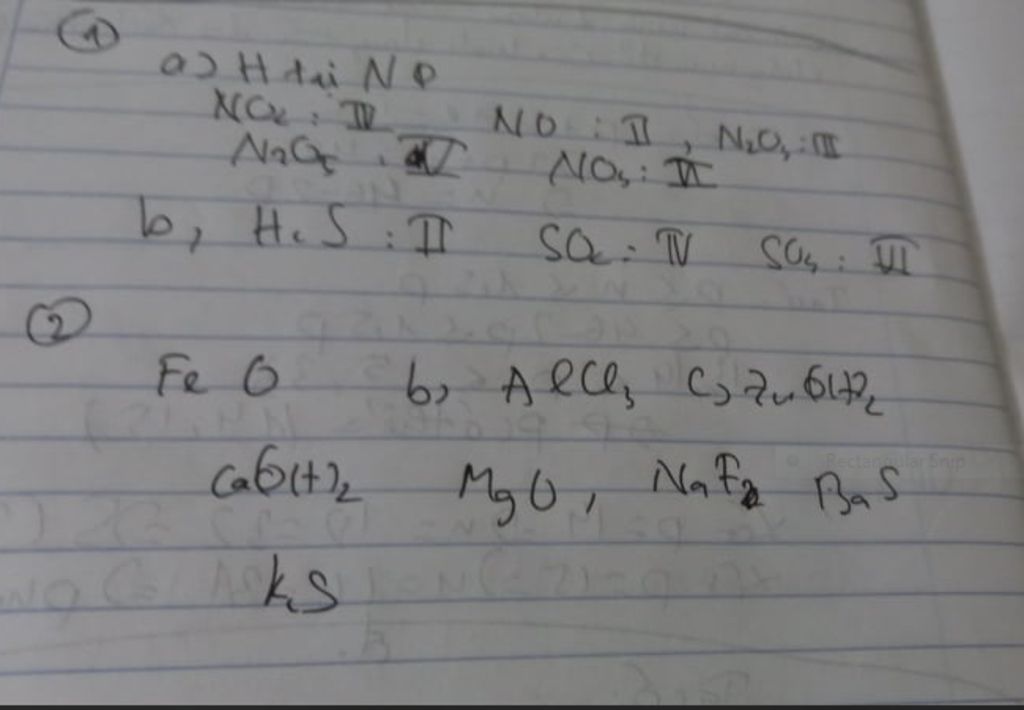 1
a) H trị N
NO2 : IV NO : II , N2O3 : III
N2O5 : V NO3 : VI
b, H2S : II SO2 : IV SO3 : VI
2
FeO b, AlCl3 c, Zn(OH)2
Ca(OH)2 MgO, NaF BaS
K2S
Rectangular Snip